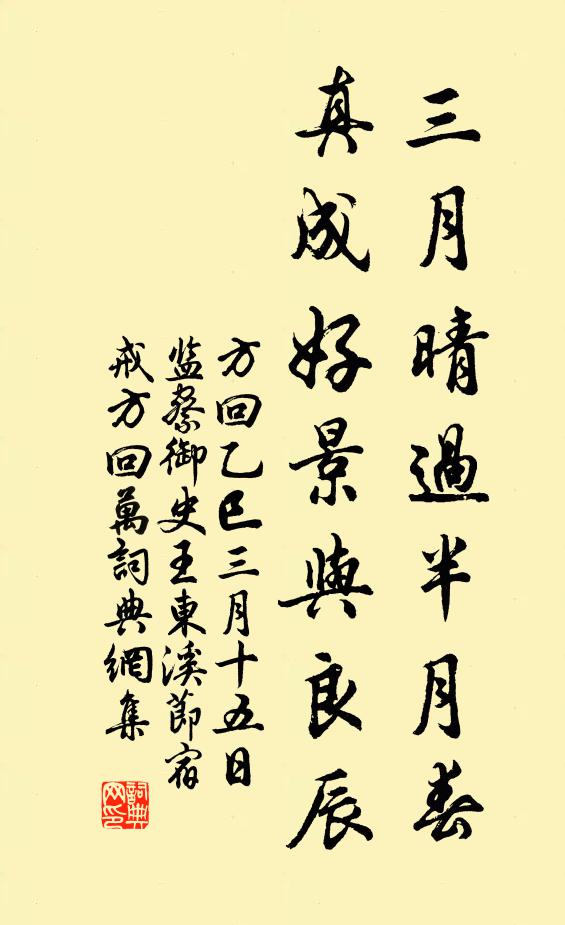 三月晴過半月春
真成好景與良辰
方回乙巳三月十五日
监察御史王東溪節宿
戒方回萬詞典網集
詞典网印